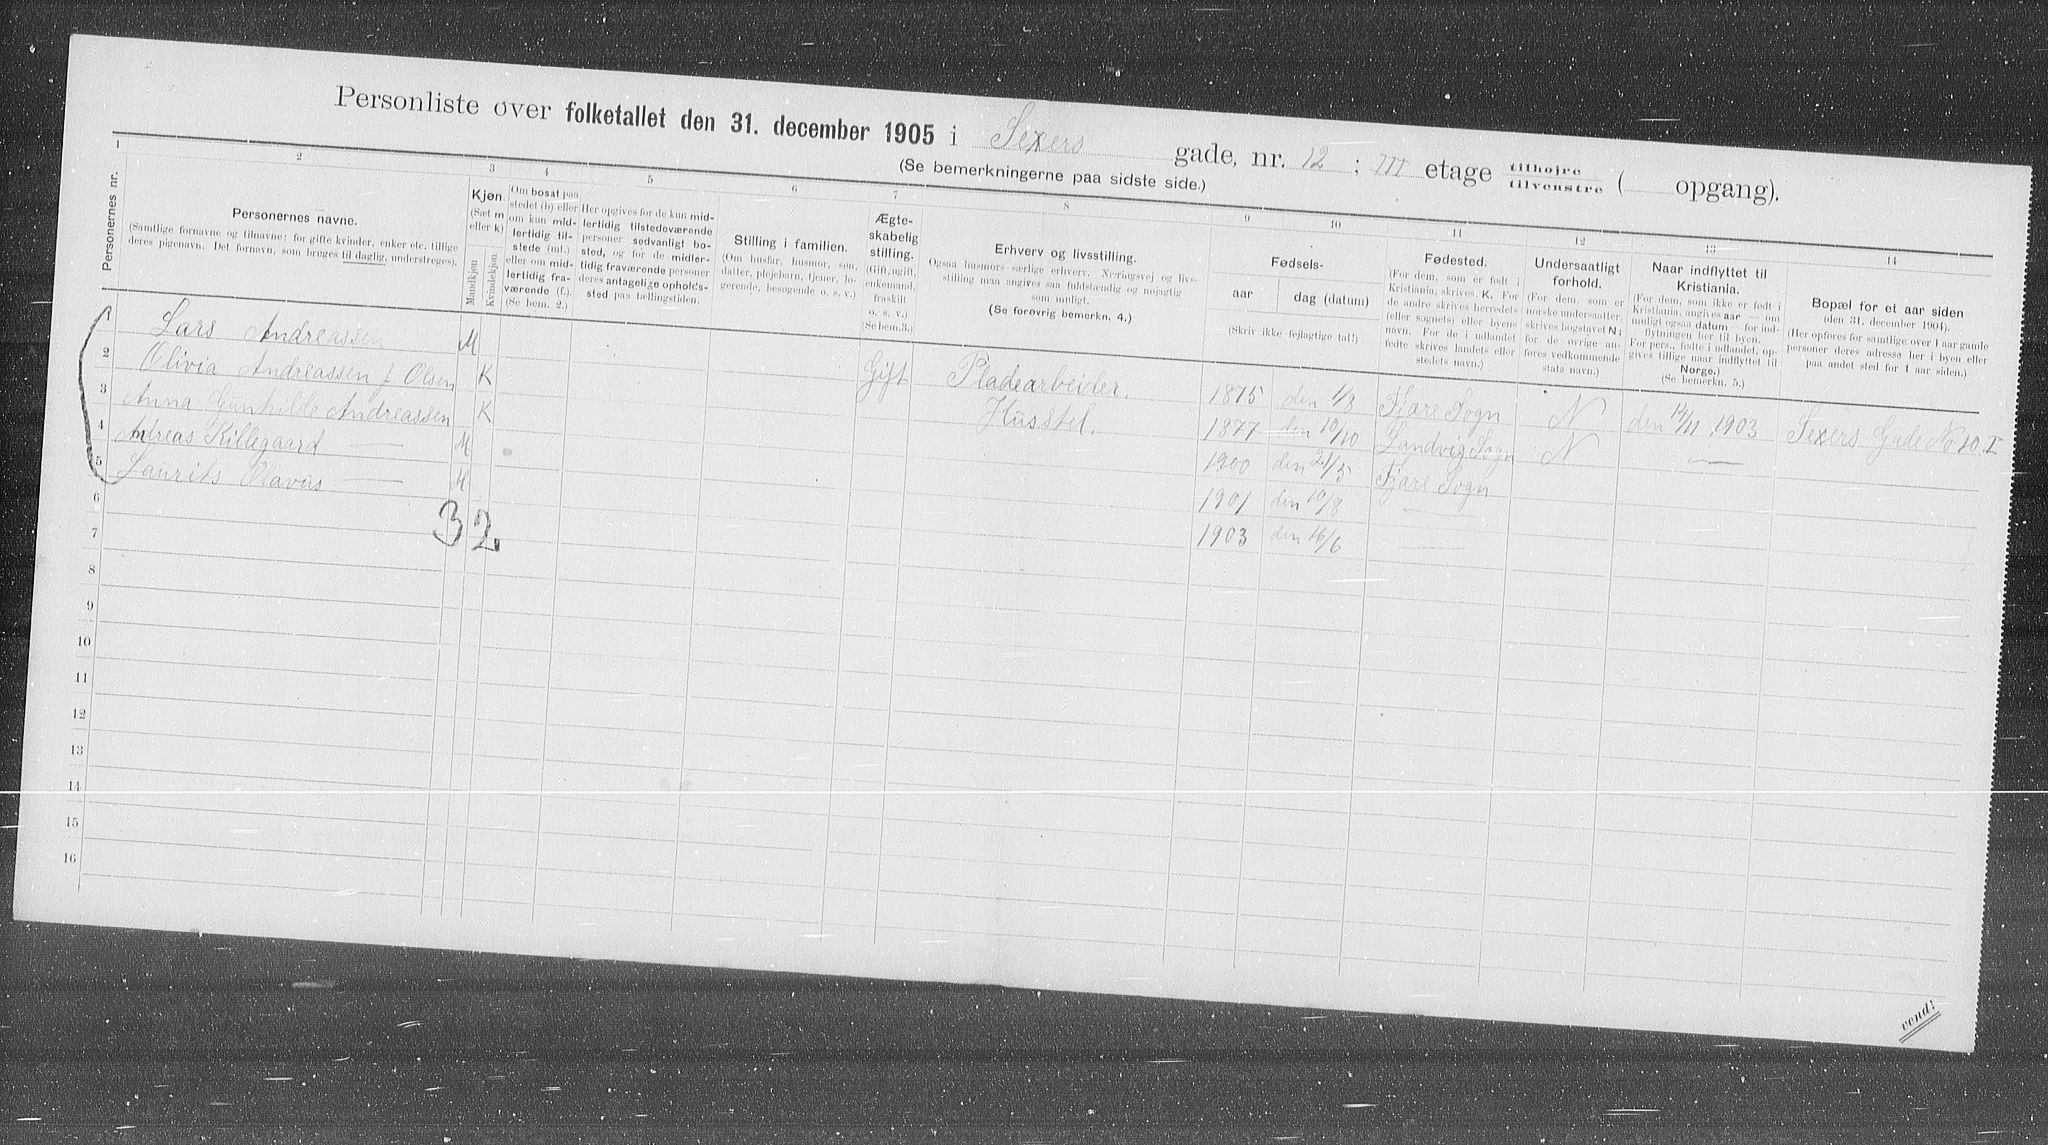 Personliste over folketallet den 31. december 1905 i Sexers gade, nr. 12 ; III etage tilhøjre tilvenstre ( opgang).
(Se bemerkningerne paa sidste side.)
1 2 3 4 5 6 7 8 9 10 11 12 13 14
Personernes nr.
Personernes navne.
(Samtlige fornavne og tilnavne; for gifte kvinder, enker etc. tillige
deres pigenavn. Det fornavn, som bruges til daglig, understreges).
Kjøn.
(Sæt m
eller k)
Mandkjøn
Kvindekjøn
Om bosat paa
stedet (b) eller
om kun mid-
lertidig til-
stede (mt.)
eller om mid-
lertidig fra-
værende (f.).
(Se bem. 2.)
Her opgives for de kun mid-
lertidig tilstedeværende
personer sedvanligt bo-
sted, og for de midler-
tidig fraværende personer
deres antagelige opholds-
sted paa tællingstiden.
Stilling i familien.
(Om husfar, husmor, søn,
datter, plejebarn, tjener, lo-
gerende, besøgende o. s. v.)
Ægte-
skabelig
stilling.
(Gift, ugift,
enkemand,
fraskilt
o. s. v.)
(Se bem.3.)
Erhverv og livsstilling.
Ogsaa husmors særlige erhverv. Næringsvej og livs-
stilling maa angives saa fuldstændig og nøjagtig
som muligt.
(Se forøvrig bemerkn. 4.)
Fødsels-
aar
dag (datum)
(Skriv ikke fejlagtige tal!)
Fødested.
(For dem, som er født i
Kristiania, skrives K. For
de andre skrives herredets
(eller sognets) eller byens
navn. For de i udlandet
fødte skrives landets eller
stedets navn.)
Undersaatligt
forhold.
(For dem, som er
norske undersaatter,
skrives bogstavet N;
for de øvrige an-
føres vedkommende
stats navn.)
Naar indflyttet til
Kristiania.
(For dem, som ikke er født i
Kristiania, angives aar — om
muligt ogsaa datum — for ind-
flytningen her til byen.
For pers., fødte i udlandet, op-
gives tillige naar indflyttet til
Norge.)
(Se bemerkn. 5.)
Bopæl for et aar siden
(den 31. december 1904).
(Her opføres for samtlige over 1 aar gamle
personer deres adresse her i byen eller
paa andet sted for 1 aar siden.)
1 Lars Andreassen M Gift Pladearbeider. 1875 den 1/8 Fjære Sogn N den 14/11 1903 Sexers Gade No 10. I
2 Olivia Andreassen f Olsen K Husstel. 1877 den 10/10 Landvig Sogn N —
3 Anna Gunhilde Andreassen K 1900 den 21/5 Fjære Sogn
4 Andreas Killegaard — M 1901 den 10/8 —
5 Laurits Olavus — M 1903 den 16/6 —
6
3 2
7
8
9
10
11
12
13
14
15
16
vend!